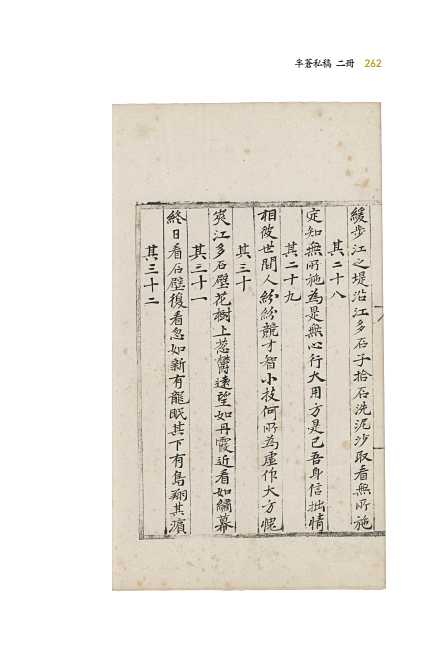 半蒼私稿 二冊 262
緩步江之堤沿江多石子拾石洗泥沙取看無所施
其二十八
定知無所施為是無心行大用方是已吾身信拙情
其二十九
相彼世間人紛紛競才智小技何所為虛作大方愧
其三十
夾江多石壁花樹上蔥鬱遠望如丹霞近看如繡幕
其三十一
終日看石壁復看忽如新有龍眠其下有鳥翔其濱
其三十二